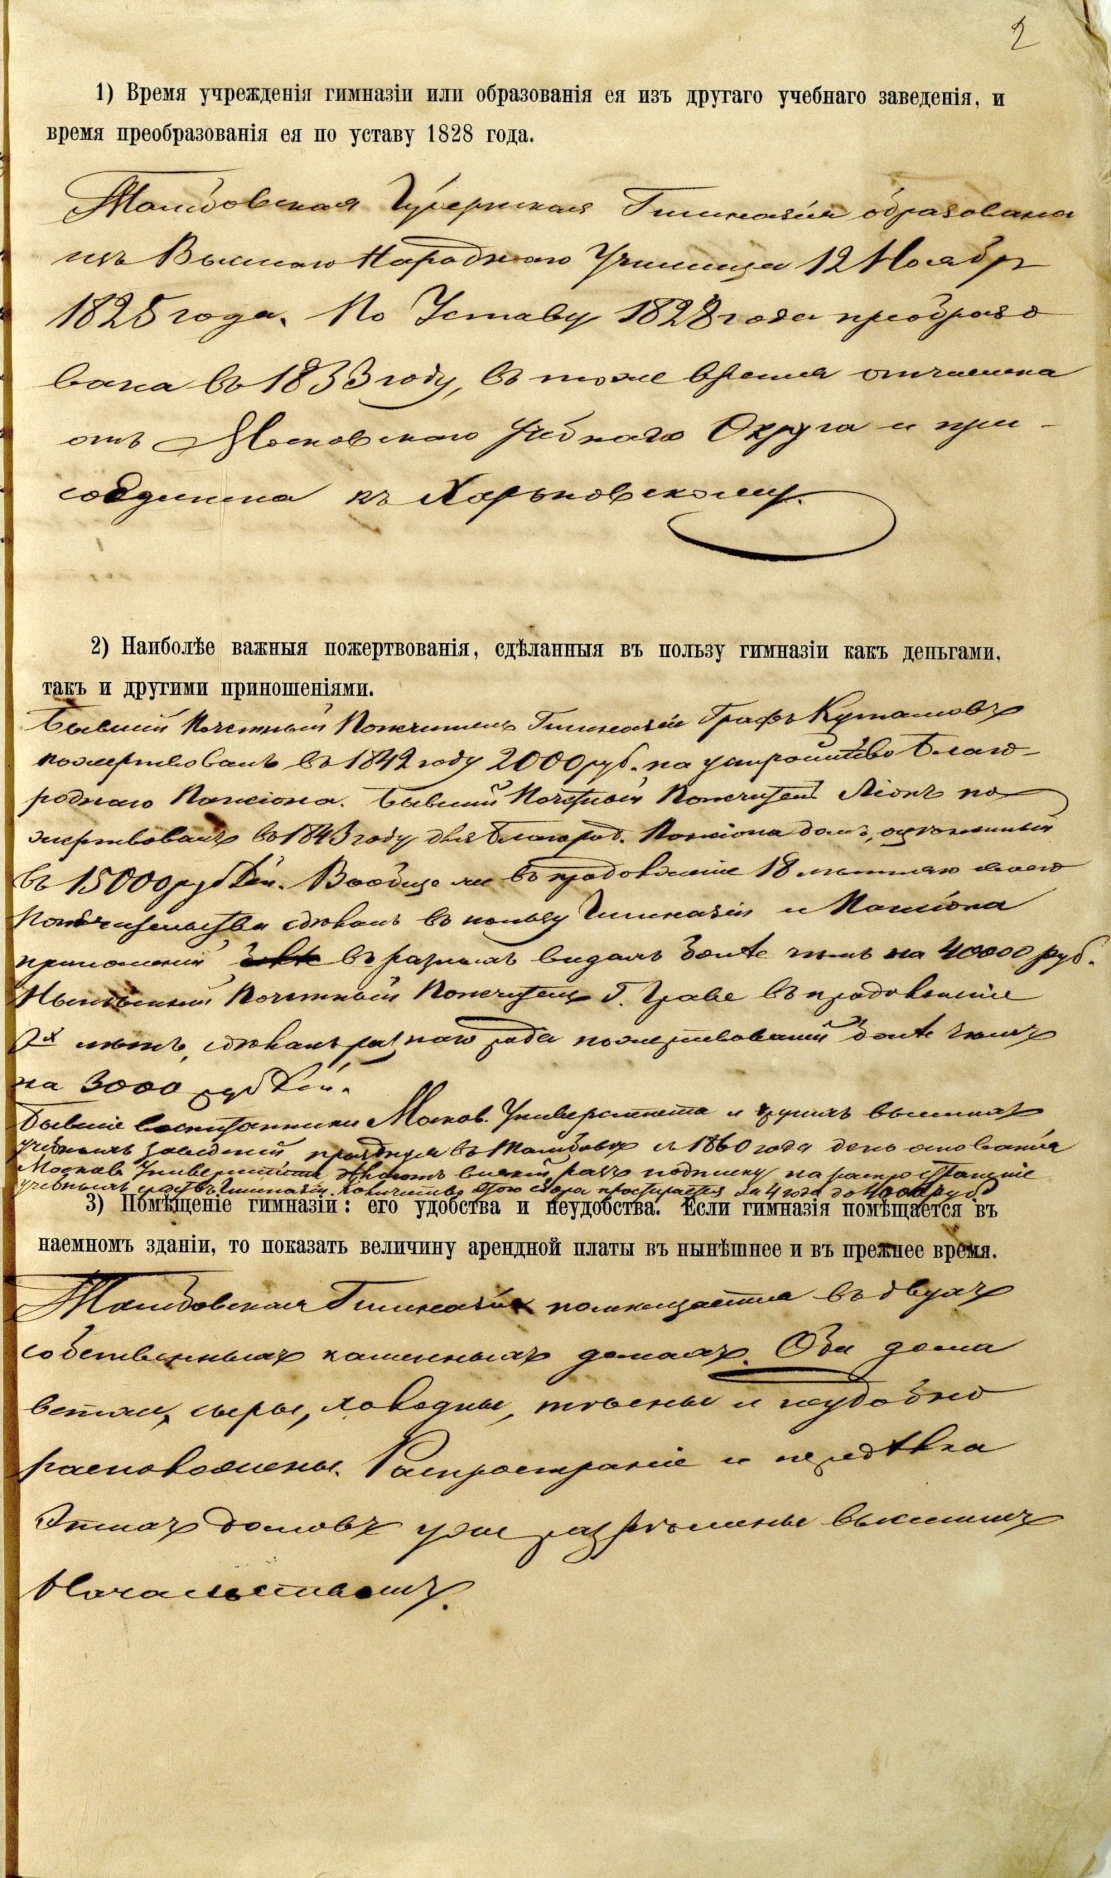 2
1) Время учрежденія гимназіи или образованія ея изъ другаго учебнаго заведенія, и
время преобразованія ея по уставу 1828 года.
Тамбовская Губернская Гимназія образована
изъ Высшаго Народнаго Училища 12 Ноября
1825 года. По Уставу 1828 года преобразо
вана въ 1833 году, въ тоже время отчислена
отъ Московскаго Учебнаго Округа и при-
соединена къ Харьковскому.
2) Наиболѣе важныя пожертвованія, сдѣланныя въ пользу гимназіи какъ деньгами,
такъ и другими приношеніями.
Бывшій Почетный Попечитель Гимназіи Графъ Кутайсовъ
пожертвовалъ въ 1842 году 2000 руб. на устройство Благо-
роднаго Пансіона. Бывшій Почетный Попечитель Ліонъ по
жертвовалъ въ 1843 году для Благород. Пансіона домъ, оцѣненный
въ 15000 рублей. Вообще же въ продолженіе 18 лѣтняго своего
Попечительства сдѣлалъ въ пользу Гимназіи и Пансіона
приношеній въ разныхъ видахъ болѣе чѣмъ на 40000 руб.
Нынѣшній Почетный Попечитель Г. Граве въ продолженіе
2х лѣтъ, сдѣлалъ разнаго рода пожертвованій болѣе чѣмъ
на 3000 рублей.
Бывшіе воспитанники Москов. Университета и другихъ высшихъ
учебныхъ заведеній празднуя въ Тамбовѣ съ 1860 года день основанія
Москов. Университета дѣлаютъ всякій разъ подписку на распространеніе
учебныхъ средствъ Гимназіи. Количество этого сбора простирается за 4 года до 400 руб.
3) Помѣщеніе гимназіи: его удобства и неудобства. Если гимназія помѣщается въ
наемномъ зданіи, то показать величину арендной платы въ нынѣшнее и въ прежнее время.
Тамбовская Гимназія помѣщается въ двухъ
собственныхъ каменныхъ домахъ. Оба дома
ветхи, сыры, холодны, тѣсны и неудобно
расположены. Распространіе и передѣлка
этихъ домовъ уже разрѣшены высшимъ
Начальствомъ.